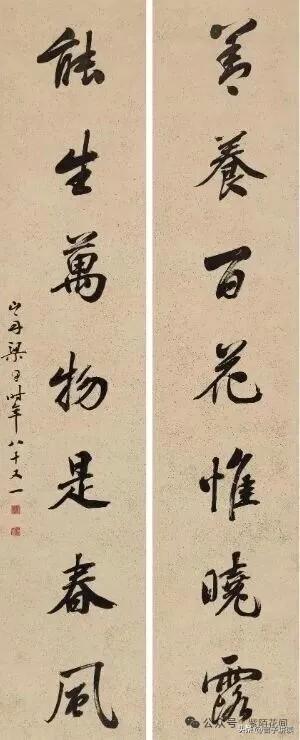 善養百花惟曉露
能生萬物是春風
山舟梁同時年八十又一
公众号·紫陌花间